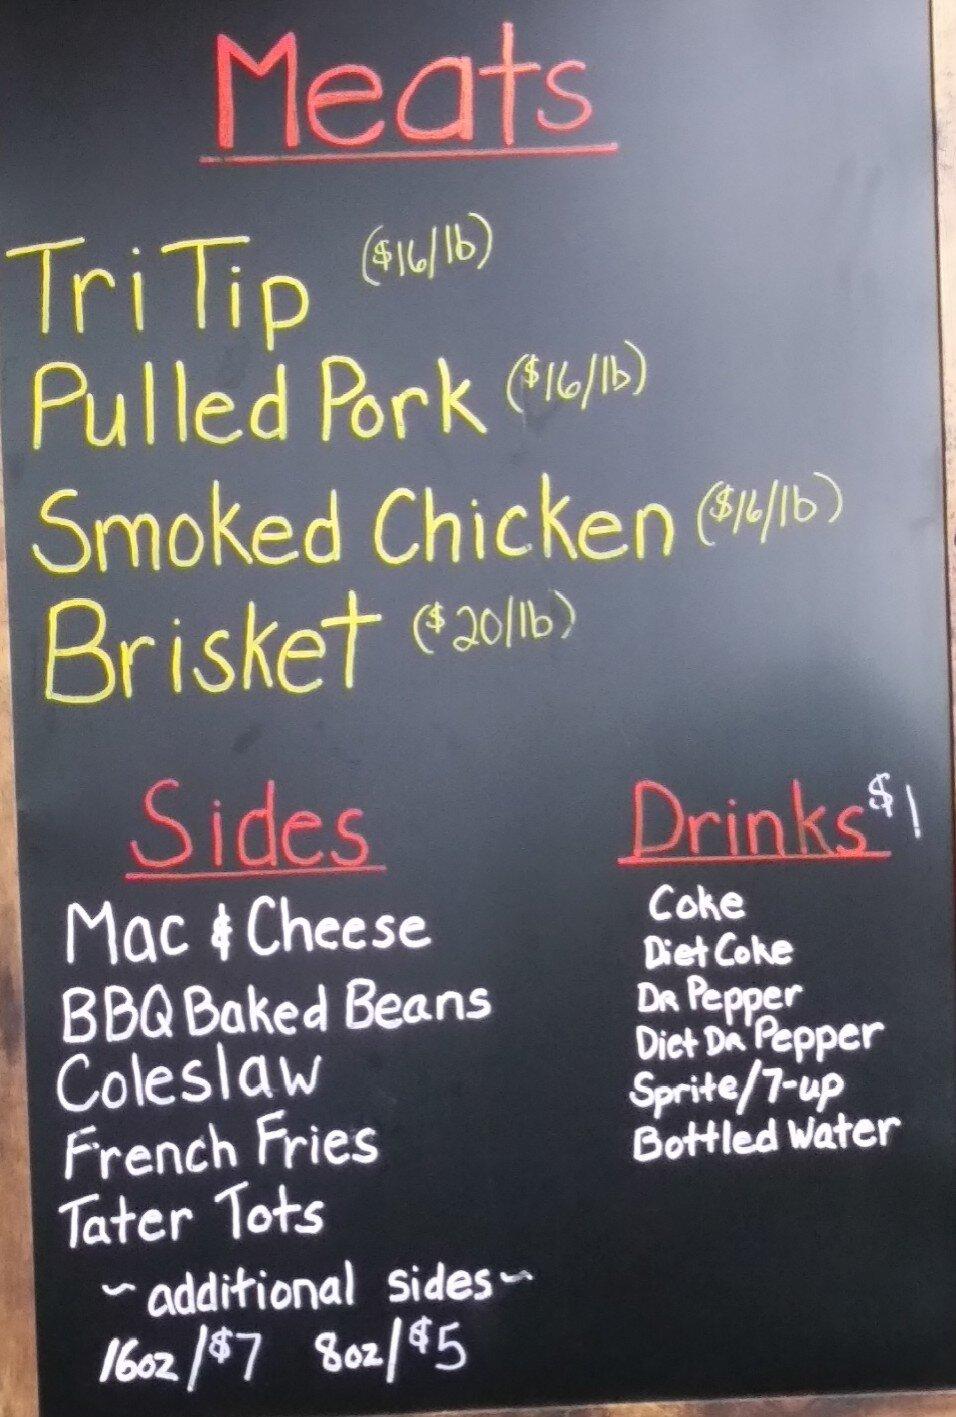 Meats
Tri Tip ($16/lb)
Pulled Pork ($16/lb)
Smoked Chicken ($16/lb)
Brisket ($20/lb)
Sides
Mac & Cheese
BBQ Baked Beans
Coleslaw
French Fries
Tater Tots
~additional sides~
16oz/$7 8oz/$5
Drinks $1
Coke
Diet Coke
DR Pepper
Diet DR Pepper
Sprite/7-up
Bottled Water